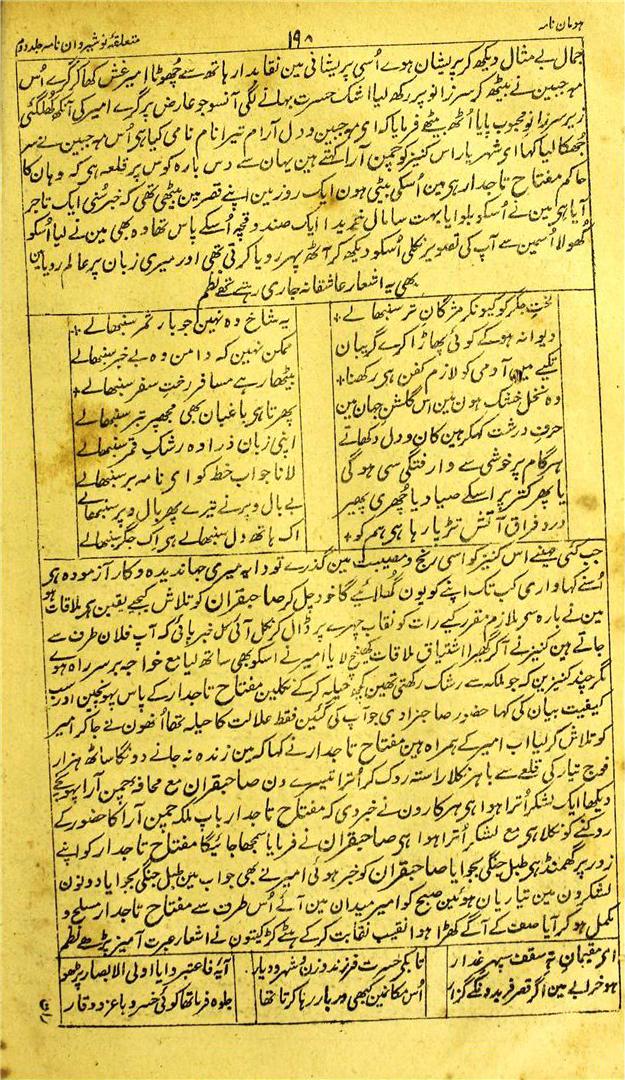 ہومان نامہ
۱۹۸
متعلقۂ نوشیروان نامہ جلد دوم
جمال بے مثال دیکھ کر پریشان ہوے اُسی پریشانی مین نقابدار ہاتھ سے چھوٹا امیر غش کھا کر گرے اُس
مہ جبین نے بیٹھ کر سر زانو پر رکھ لیا اشک حسرت بہانے لگی آنسو جو عارض پر گرے امیر کی آنکھ کھل گئی
زیر سر زانوے محبوب پایا اُٹھ بیٹھے فرمایا کہ ای مہ جبین و دل آرام تیرا نام نامی کیا ہی اُس مہ جبین نے سر
جھکا لیا کہا ای شہریار اس کنیز کو چمن آرا کہتے ہین یہان سے دس بارہ کوس پر قلعہ ہی کہ وہان کا
حاکم مفتاح تاجدار ہی مین اُسکی بیٹی ہون ایک روز مین اپنے قصر مین بیٹھی تھی کہ خبر سُنی ایک تاجر
آیا ہی مین نے اُسکو بلوایا بہت سا مال خریدا ایک صندوقچہ اُسکے پاس تھا وہ بھی مین نے لیا اُسکو
کھولا اُسمین سے آپ کی تصویر نکلی اُسکو دیکھ کر آٹھ پہر رویا کرتی تھی اور میری زبان پر عالم رویا مین
بھی یہ اشعار عاشقانہ جاری رہتے تھے نظم
لخت جگر کو کیونکر مژگان تر سنبھالے
یہ شاخ وہ نہین جو بار ثمر سنبھالے
دیوانہ ہوکے کوئی پھاڑا کرے گریبان
ممکن نہین کہ دامن وہ بے خبر سنبھالے
تکیے مین آدمی کو لازم کفن ہی رکھنا
بیٹھا رہے مسافر رخت سفر سنبھالے
وہ نخل خشک ہون مین اس گلشن جہان مین
پھرتا ہی باغبان بھی مجھپر تبر سنبھالے
حرف درشت کہکر ہین کان و دل دکھاتے
اپنی زبان ذرا وہ رشک قمر سنبھالے
ہر گام پر خوشی سے وارفتگی سی ہوگی
لانا جواب خط کو ای نامہ بر سنبھالے
یا پھر کتر پر اسکے صیاد یا چھری پھیر
بے بال و پر نے تیرے پھر بال و پر سنبھالے
درد فراق آتش تڑپا رہا ہی ہم کو
اک ہاتھ دل سنبھالے ہی اک جگر سنبھالے
جب کئی مہینے اس کنیز کو اسی رنج و مصیبت مین گذرے تو دایہ میری جہاندیدہ و کار آزمودہ ہی
اُسنے کہا واری کب تک اپنے کو یون گھلائیے گا خود چل کر صاحبقران کو تلاش کیجیے یقین ہی ملاقات ہو
مین نے بارہ سی ملازم مقرر کیے رات کو نقاب چہرے پر ڈال کر نکل آئی کل خبر پائی کہ آپ فلان طرف سے
جاتے ہین کنیز نے آکر گھیرا اشتیاق ملاقات کھینچ لایا امیر نے اسکو بھی ساتھ لیا مع خواجہ بر سر راہ ہوے
مگر چند کنیزین کہ جو ملکہ سے رشک رکھتی تھین کچھ حیلہ کر کے نکلین مفتاح تاجدار کے پاس پہونچین اور سب
کیفیت بیان کی کہا حضور صاحبزادی جو آپ کی گئین فقط علالت کا حیلہ تھا اُنھون نے جاکر امیر
کو تلاش کرلیا اب امیر کے ہمراہ ہین مفتاح تاجدار نے کہا کہ مین زندہ نہ جانے دونگا ساٹھ ہزار
فوج تیار کی قلعے سے باہر نکلا راستہ روک کر اُترا تیسرے دن صاحبقران مع محافہ چمن آرا پہونچے
دیکھا ایک لشکر اُترا ہوا ہی ہرکارون نے خبر دی کہ مفتاح تاجدار باپ ملکہ چمن آرا کا حضور کے
روکنے کو نکلا ہی مع لشکر اُترا ہوا ہی صاحبقران نے فرمایا سمجھا جائیگا مفتاح تاجدار کو اپنے
زور پر گھمنڈ ہی طبل جنگی بجوایا صاحبقران کو خبر ہوئی امیر نے بھی جواب مین طبل جنگی بجوایا دونون
لشکرون مین تیاریان ہوئین صبح کو امیر میدان مین آئے اُس طرف سے مفتاح تاجدار مسلح و
مکمل ہوکر آیا صف کے آگے کھڑا ہوا نقیب نقابت کرکے ہٹے کڑکیتون نے اشعار عبرت آمیز پڑھے نظم
ای مقیمان تہ سقف سپہر غدار
تا بکی حسرت فرزند و زن و شہر و دیار
آیۂ فاعتبروا یا اولی الابصار پڑھو
ہو خرابے مین اگر قصر فریدون کے گذار
اُس مکانمین کبھی دربار رہا کرتا تھا
جلوہ فرما تھا کوئی خسرو با عز و وقار